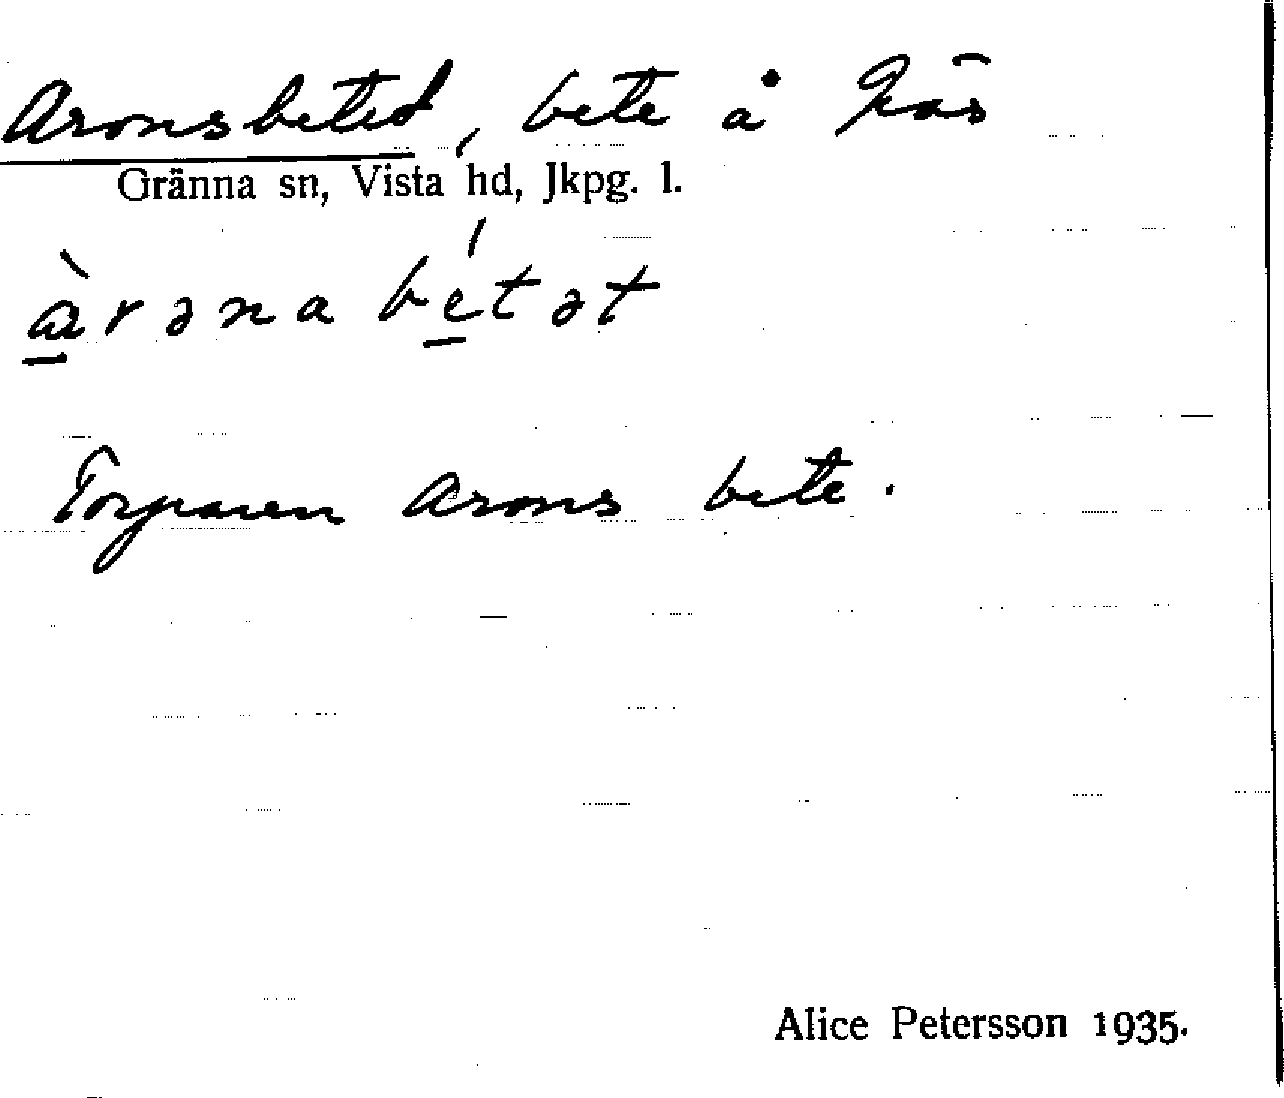 Aronsbetet, bete å
Gränna sn, Vista hd, Jkpg. l.
Torparen Arons bete.
Alice Petersson 1935.